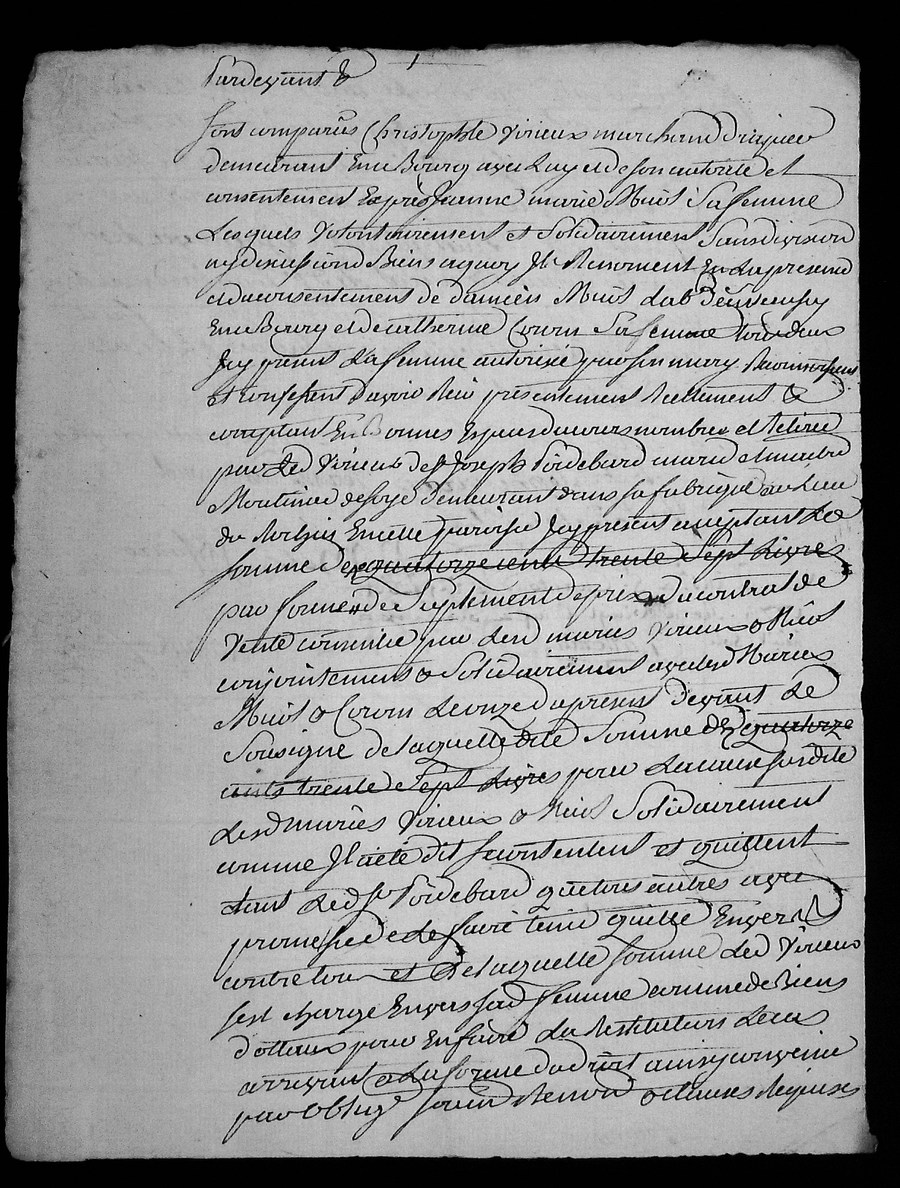 Pardevant &
sont comparus Christophle Virieux marchand drapier
demeurant En ce Bourg avec Luy et de son autorité et
consentement Exprès Jeanne marie Miiol Sa femme
Lesquels Volontairement et Solidairement Sans division
ny discussion de Biens a quoy Ils Renoncent En la presence
et du consentement de damien Miiol
En ce Bourg et de catherine Coron Sa femme tous deux
Icy presents La femme autorisée par son mary Reconnoissent
et confessent d'avoir Reçu présentement Reellement &
comptant En Bonnes Especes de cours nombrées et retirée
par led Virieux de Sr Joseph Poidebard marié et maitre
Moulinier de soye demeurant dans sa fabrique au Lieu
du En cette paroisse Icy present acceptant La
somme de quatorze cents trente Sept Livres
par forme de Suplement de prix du contrat de
Vente consentie par lesd mariés Virieux & Miiol
conjointement & Solidairement avec lesd Mariés
Miiol & Coron Le onze du present devant Le
Sousigné de laquelle dite Somme de quatorze
cents trente Sept Livres pour La cause susdite
Lesd mariés Virieux & Miiol Solidairement
comme Il a été dit se contentent et quittent
tant Led Sr Poidebard que tous autres avec
promesse de le faire tenir quitte Envers &
contre tous et de laquelle somme led Virieux
s'est chargé Envers sad femme comme de Biens
dotaux pour En faire La Restitution Le cas
arrivant & La forme du droit ainsy convenu
par Oblig Soum Renon & clauses Requises